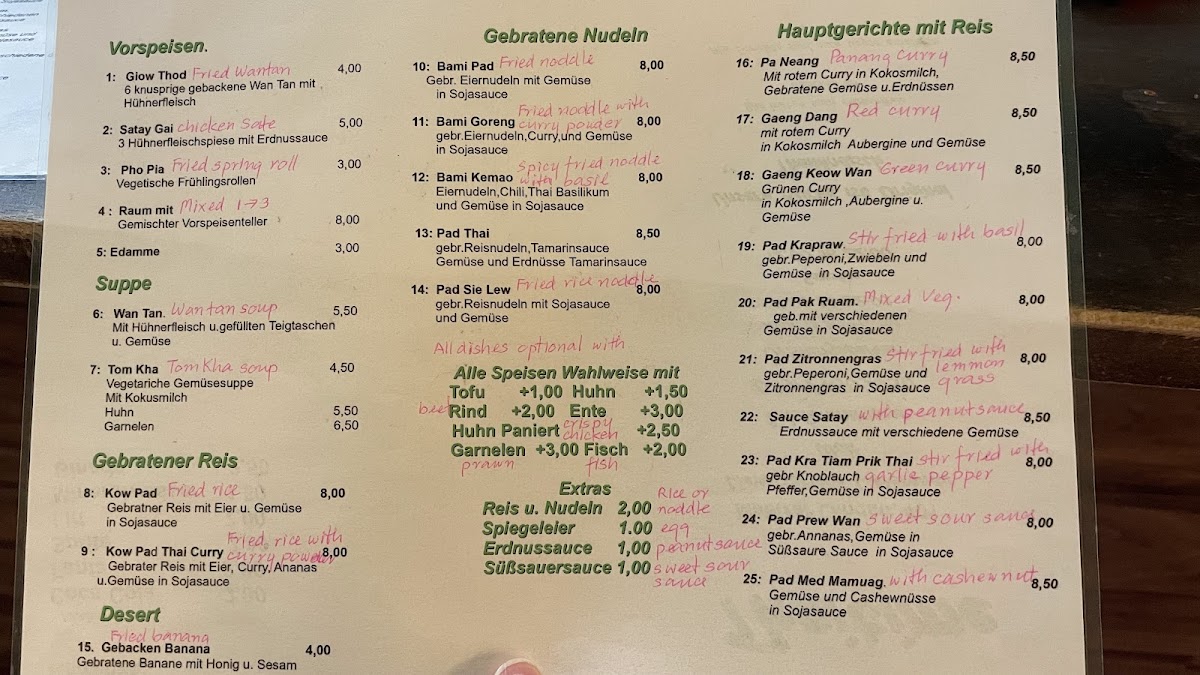 Vorspeisen.
1: Giow Thod Fried Wantan 4,00
6 knusprige gebackene Wan Tan mit
Hühnerfleisch
2: Satay Gai chicken Sate 5,00
3 Hühnerfleischspiese mit Erdnussauce
3: Pho Pia Fried spring roll 3,00
Vegetische Frühlingsrollen
4 : Raum mit Mixed 1→3
Gemischter Vorspeisenteller 8,00
5: Edamme 3,00
Suppe
6: Wan Tan. Wantan soup 5,50
Mit Hühnerfleisch u.gefüllten Teigtaschen
u. Gemüse
7: Tom Kha Tom Kha soup 4,50
Vegetariche Gemüsesuppe
Mit Kokusmilch
Huhn 5,50
Garnelen 6,50
Gebratener Reis
8: Kow Pad Fried rice 8,00
Gebratner Reis mit Eier u. Gemüse
in Sojasauce
Fried rice with
9 : Kow Pad Thai Curry curry powder 8,00
Gebrater Reis mit Eier, Curry, Ananas
u.Gemüse in Sojasauce
Desert
Fried banana
15. Gebacken Banana 4,00
Gebratene Banane mit Honig u. Sesam
Gebratene Nudeln
10: Bami Pad Fried noddle 8,00
Gebr. Eiernudeln mit Gemüse
in Sojasauce
Fried noddle with
11: Bami Goreng curry powder 8,00
gebr.Eiernudeln,Curry,und Gemüse
in Sojasauce
Spicy fried noddle
12: Bami Kemao with basil 8,00
Eiernudeln,Chili,Thai Basilikum
und Gemüse in Sojasauce
13: Pad Thai 8,50
gebr.Reisnudeln,Tamarinsauce
Gemüse und Erdnüsse Tamarinsauce
14: Pad Sie Lew Fried rice noddle 8,00
gebr.Reisnudeln mit Sojasauce
und Gemüse
All dishes optional with
Alle Speisen Wahlweise mit
Tofu +1,00 Huhn +1,50
beef Rind +2,00 Ente +3,00
Huhn Paniert crispy chicken +2,50
Garnelen +3,00 Fisch +2,00
prawn fish
Extras
Reis u. Nudeln 2,00 Rice or noddle
Spiegeleier 1.00 egg
Erdnussauce 1,00 peanutsauce
Süßsauersauce 1,00 sweet sour
sauce
Hauptgerichte mit Reis
16: Pa Neang Panang curry 8,50
Mit rotem Curry in Kokosmilch,
Gebratene Gemüse u.Erdnüssen
17: Gaeng Dang Red curry 8,50
mit rotem Curry
in Kokosmilch Aubergine und Gemüse
18: Gaeng Keow Wan Green curry 8,50
Grünen Curry
in Kokosmilch ,Aubergine u.
Gemüse
19: Pad Krapraw. Stir fried with basil 8,00
gebr.Peperoni,Zwiebeln und
Gemüse in Sojasauce
20: Pad Pak Ruam. Mixed Veg. 8,00
geb.mit verschiedenen
Gemüse in Sojasauce
21: Pad Zitronnengras Stir fried with 8,00
gebr.Peperoni,Gemüse und lemmon
Zitronnengras in Sojasauce grass
22: Sauce Satay with peanutsauce 8,50
Erdnussauce mit verschiedene Gemüse
23: Pad Kra Tiam Prik Thai stir fried with 8,00
gebr Knoblauch garlic pepper
Pfeffer,Gemüse in Sojasauce
24: Pad Prew Wan sweet sour sauce 8,00
gebr.Annanas,Gemüse in
Süßsaure Sauce in Sojasauce
25: Pad Med Mamuag. with cashewnut 8,50
Gemüse und Cashewnüsse
in Sojasauce